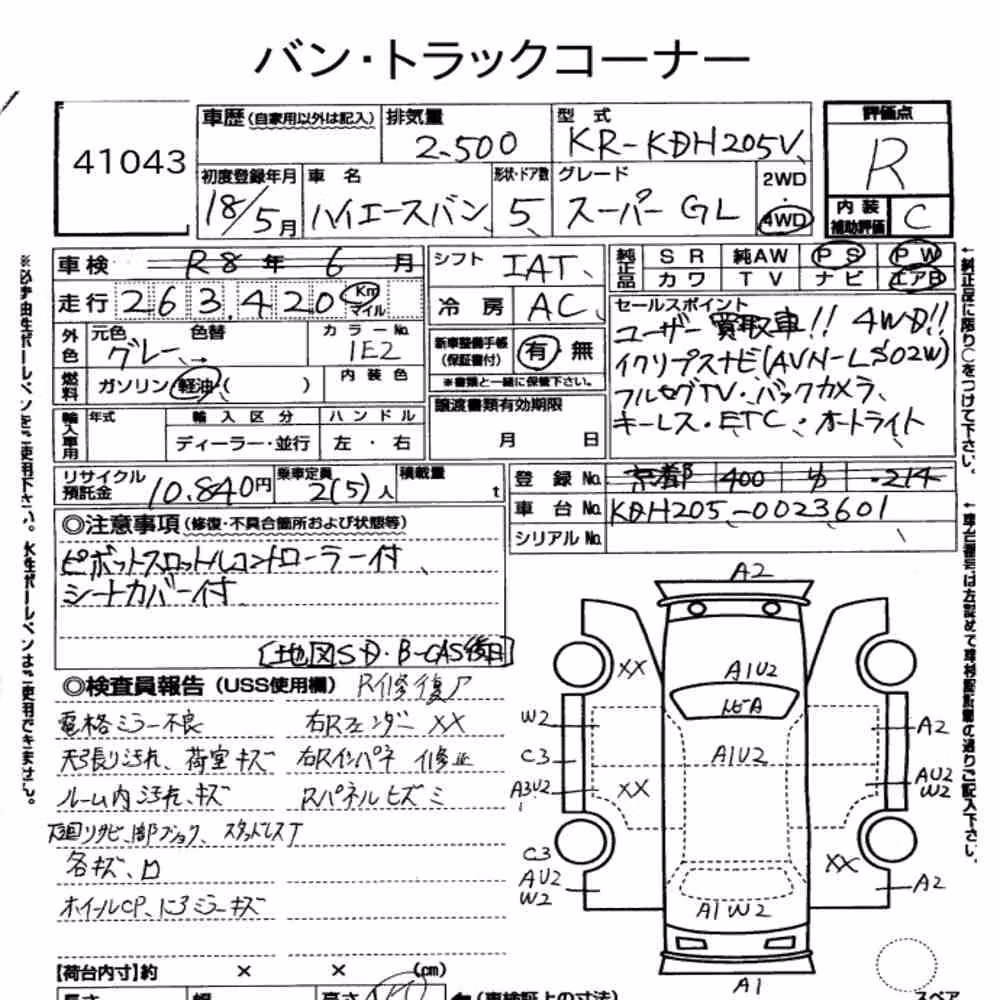 バン・トラックコーナー
41043
車歴(自家用以外は記入) 排気量 型式 評価点
2.500 KR-KDH205V R
初度登録年月 車名 形状・ドア数 グレード 2WD
18/5月 ハイエースバン 5 スーパーGL 4WD 内装補助評価 C
車検 R8年 6月 シフト IAT 純正品 SR 純AW PS PW
カワ TV ナビ エアB
走行 263.420 Km マイル 冷房 AC
セールスポイント
ユーザー買取車!! 4WD!!
イクリプスナビ(AVN-LS02W)
フルセグTV・バックカメラ、
キーレス・ETC・オートライト
外色 元色 色替 カラーNo.
グレー→ 1E2
新車整備手帳(保証書付) 有・無
※書類と一緒に保管下さい。
燃料 ガソリン 軽油( ) 内装色
輸入車用 年式 輸入区分 ハンドル
ディーラー・並行 左・右
譲渡書類有効期限
月 日
リサイクル預託金 10.840円 乗車定員 2(5)人 積載量 t
登録No. 京都 400 214
車台No. KDH205-0023601
シリアルNo.
◎注意事項(修復・不具合箇所および状態等)
ピボットスロットルコントローラー付、
シートカバー付
[地図SD・B-CAS後日]
◎検査員報告(USS使用欄) R修復ア
電格ミラー不良 右Rフェンダー XX
天張り汚れ、荷室キズ 右Rインパネ 修正
ルーム内汚れ、キズ Rパネルヒズミ
下回りサビ、 スタッドレスT
各キズ、凹
ホイールCP、 ミラーキズ
【荷台内寸】約 × × (cm)
長さ 幅 高さ ←(車検証上の寸法)
A2
XX
A1U2
トビA
W2
A2
C3
A1U2
A3U2
XX
AU2
W2
C3
AU2
W2
XX
A2
A1W2
A1
スペア
※必ず油性ボールペンをご使用下さい。水性ボールペンはご使用できません。
←純正品に限り○をつけて下さい。